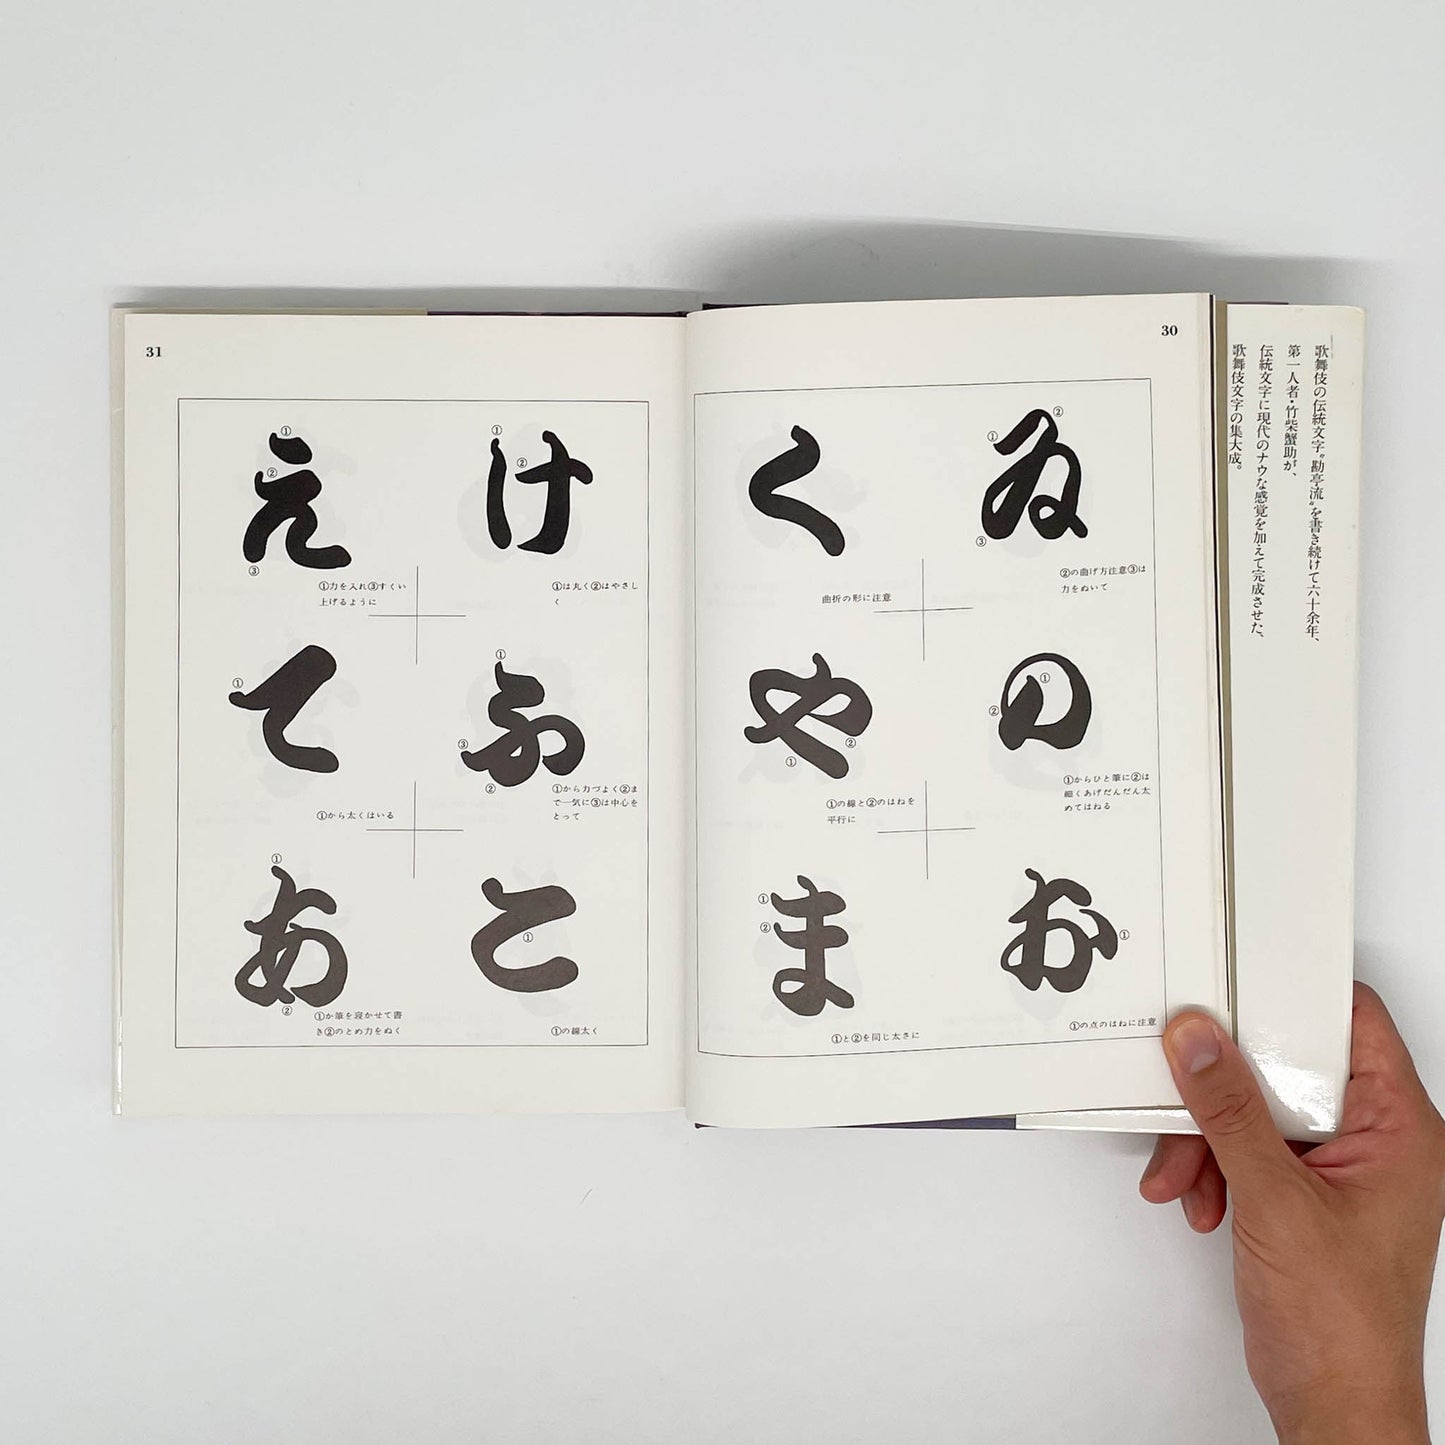 歌舞伎の伝統文字〝勘亭流〟を書き続けて六十余年、
第一人者・竹柴蟹助が、
伝統文字に現代のナウな感覚を加えて完成させた、
歌舞伎文字の集大成。
30
ゐ
①
②
③
②の曲げ方注意③は
力をぬいて
の
①
②
①からひと筆に②は
細くあげだんだん太
めてはねる
お
①
①の点のはねに注意
く
曲折の形に注意
や
①
②
①の線と②のはねを
平行に
ま
①
②
①と②を同じ太さに
31
け
①
②
①は丸く②はやさし
く
ふ
①
②
③
①から力づよく②ま
で一気に③は中心を
とって
こ
①
①の線太く
え
①
②
③
①力を入れ③すくい
上げるように
て
①
①から太くはいる
あ
①
②
①か筆を寝かせて書
き②のとめ力をぬく